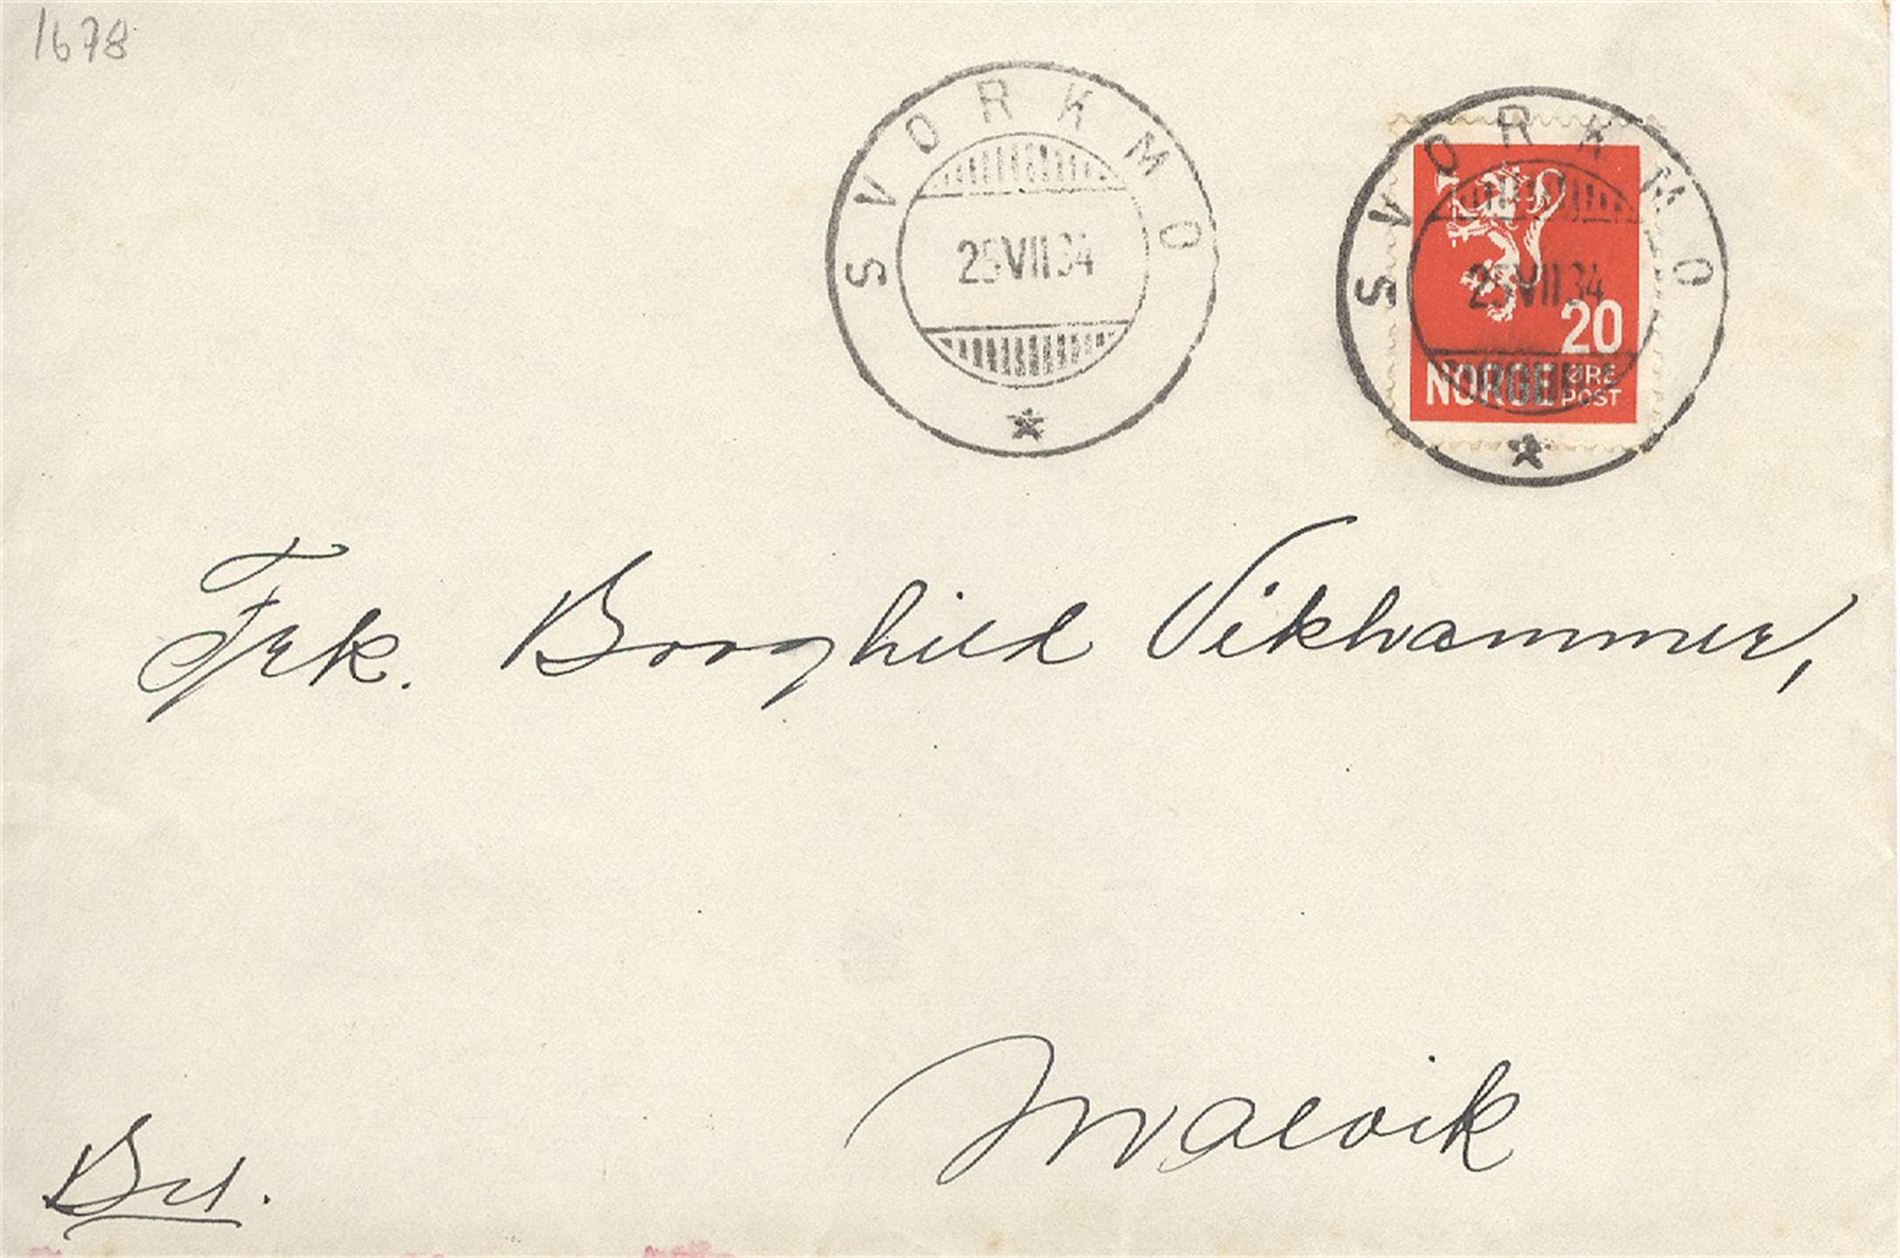 1678
SVORKMO
25 VII 34
SVORKMO
25 VII 34
20
NORGE ØRE
POST
Frk. Borghild Vikhammer,
Malvik
Bet.